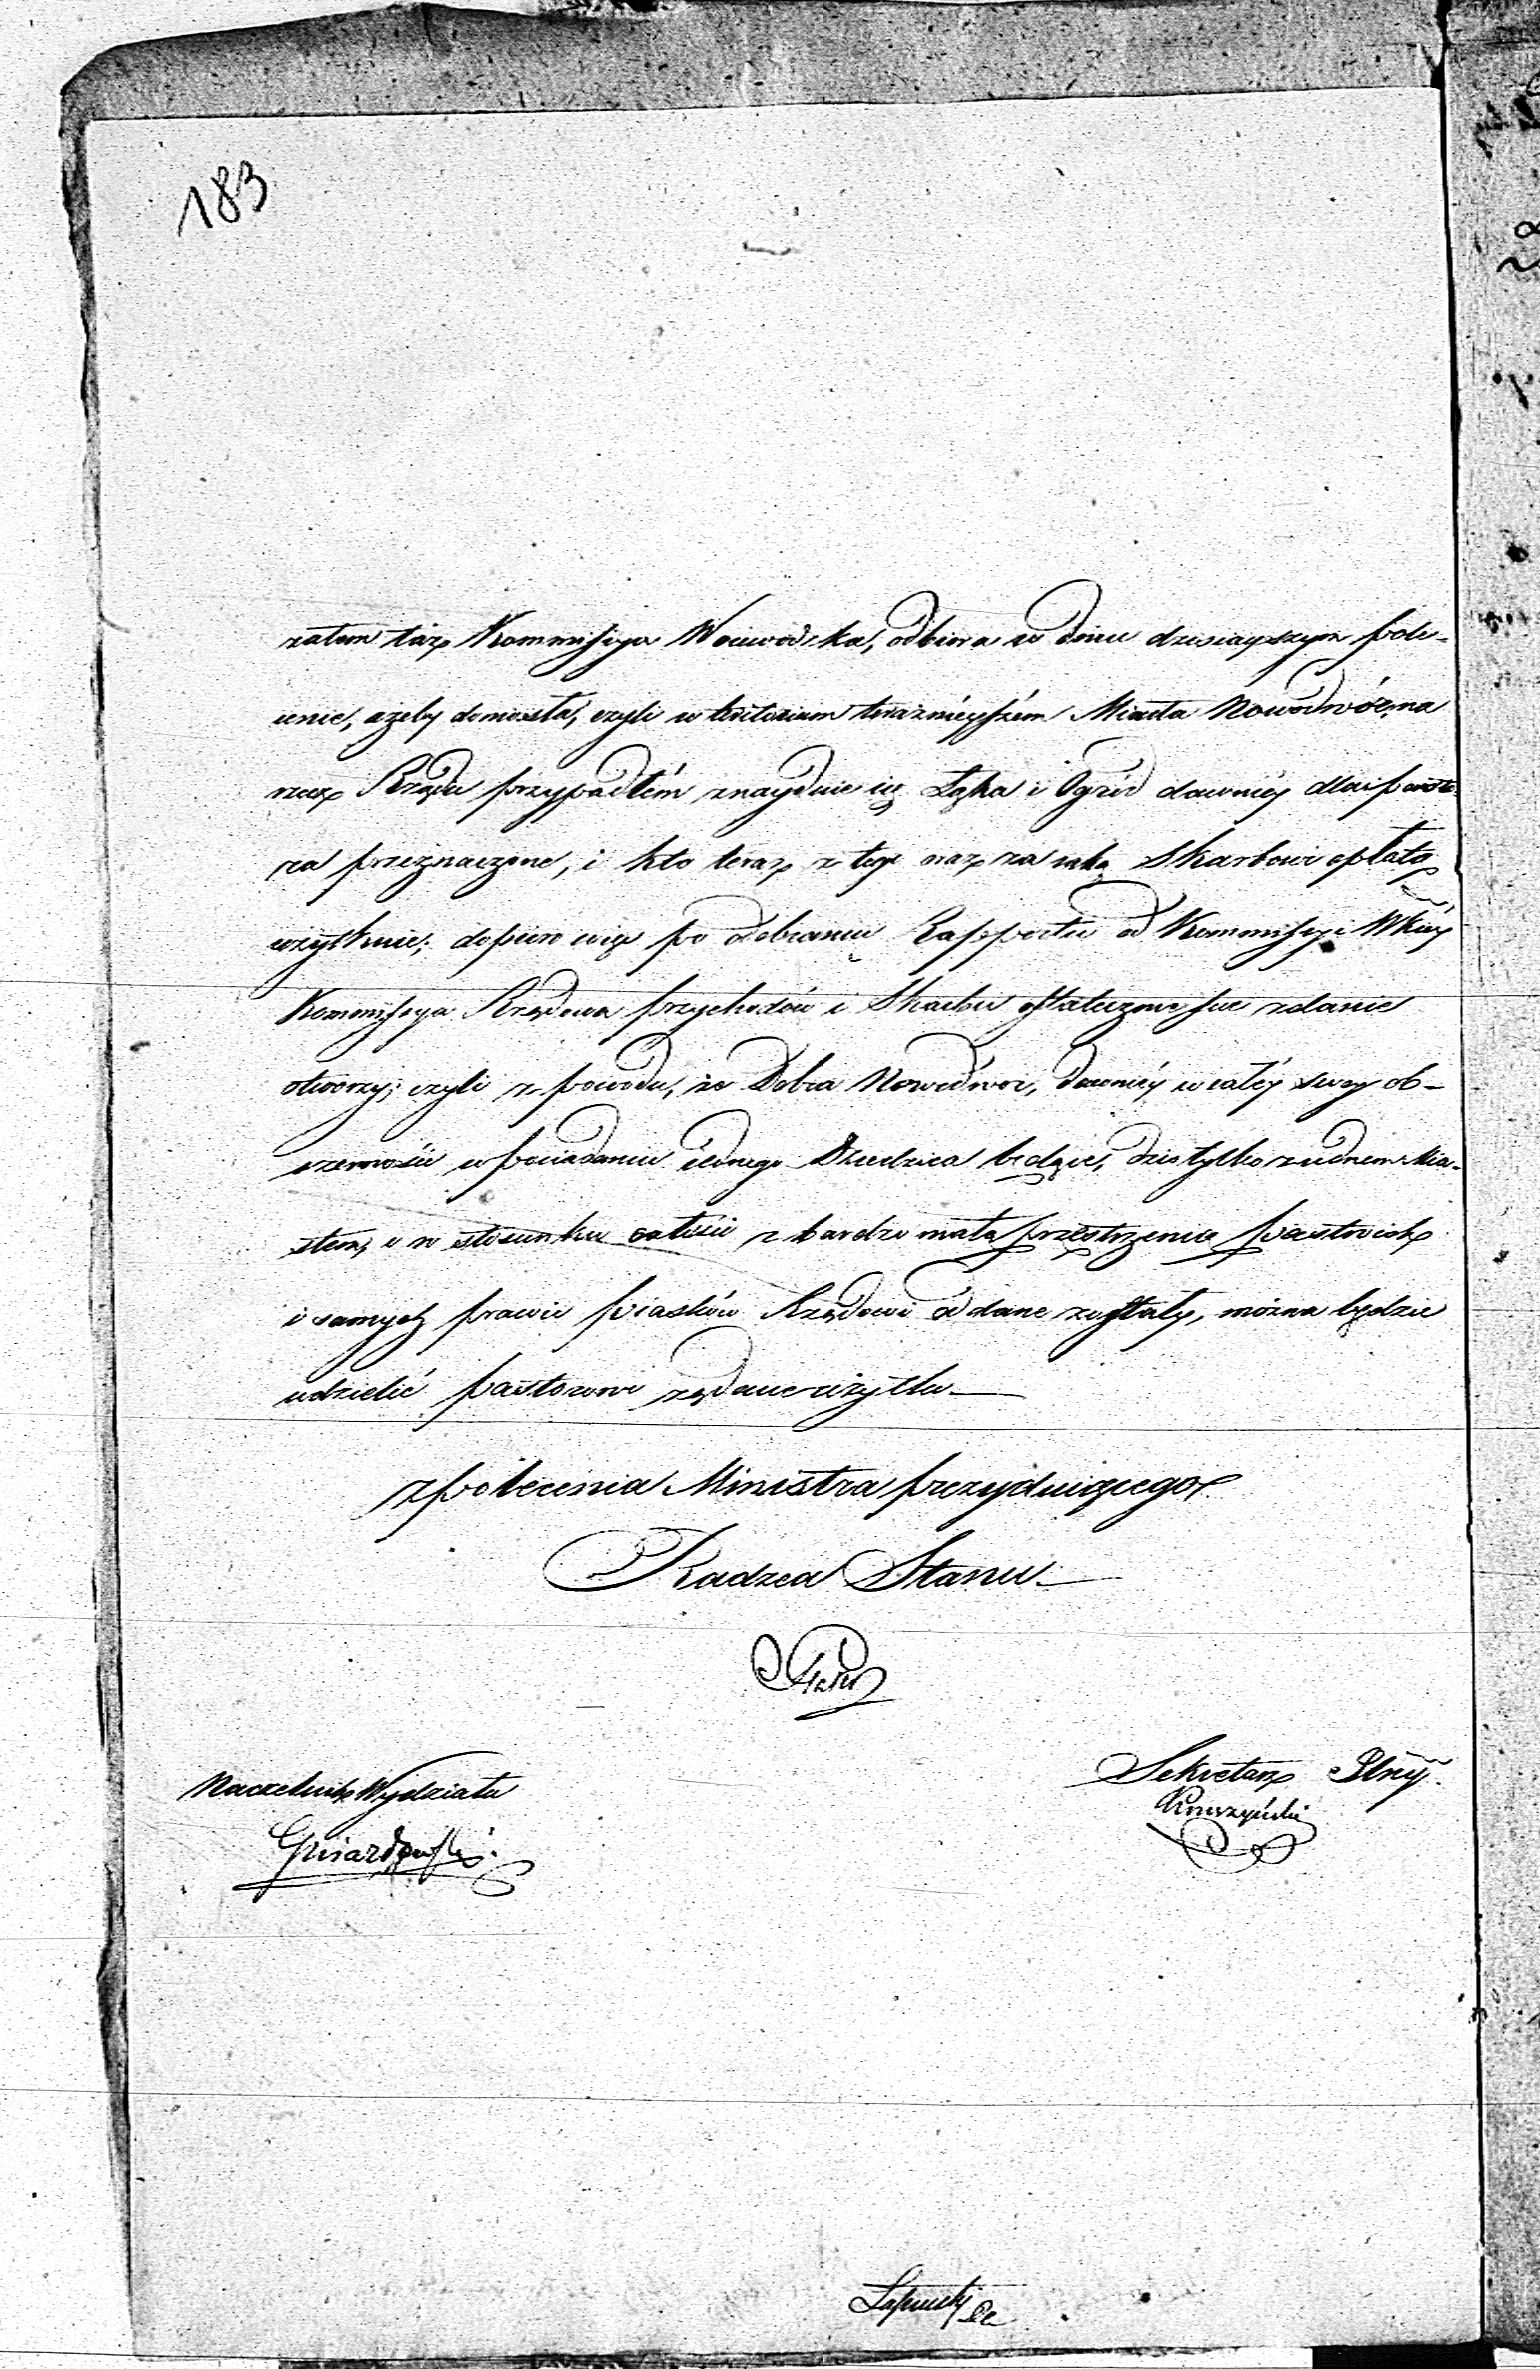 183
zatem taż Kommissya Woiewodzka, odbiera w dniu dzisiayszym pole-
cenie, ażeby doniosła, czyli w teritorium teraźnieyszém Miasta Nowodwór, na
rzecz Rządu przypadłém znayduie się Łąka i Ogród dawniéy dla pasto-
ra przeznaczone, i kto teraz z tego oraz za iaką Skarbowi opłatą
użytkuie; dopiero więc po odebraniu Rapportu od Kommissyi Wkiéy
Kommissya Rządowa przychodów i Skarbu ostateczne swe zdanie
otworzy; czyli z powodu, że Dobra Nowodwór, dawniéy w całéy swey ob-
szerności w posiadaniu iednego Dziedzica będące, dziś tylko z iednem Mia-
stem, i w stosunku całości z bardzo małą przestrzenią pastwisk
i samych prawie piasków Rządowi oddane zostały, można będzie
udzielić pastorowi żądane użytki
z polecenia Ministra prezyduiącego
Radzca Stanu
Naczelnik Wydziału
Sekretarz Jlny